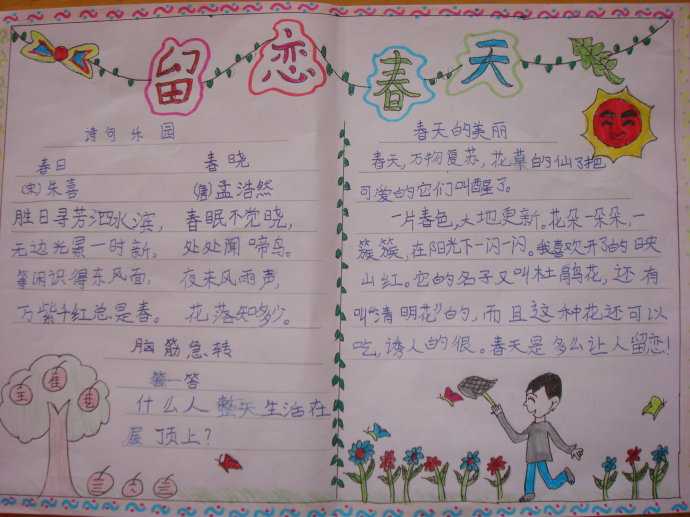 留恋春天
诗句乐园
春日
(宋)朱熹
胜日寻芳泗水滨，
无边光景一时新，
等闲识得东风面，
万紫千红总是春。
春晓
(唐)孟浩然
春眠不觉晓，
处处闻啼鸟。
夜来风雨声，
花落知多少。
脑筋急转
猜一答
什么人整天生活在
屋顶上？
春天的美丽
春天，万物复苏，花草的仙子把
可爱的它们叫醒了。
一片春色，大地更新。花朵一朵朵，一
簇簇，在阳光下一闪一闪。我喜欢开了的映
山红。它的名子又叫杜鹃花，还有
叫“清明花”的，而且这种花还可以
吃，诱人的很。春天是多么让人留恋！